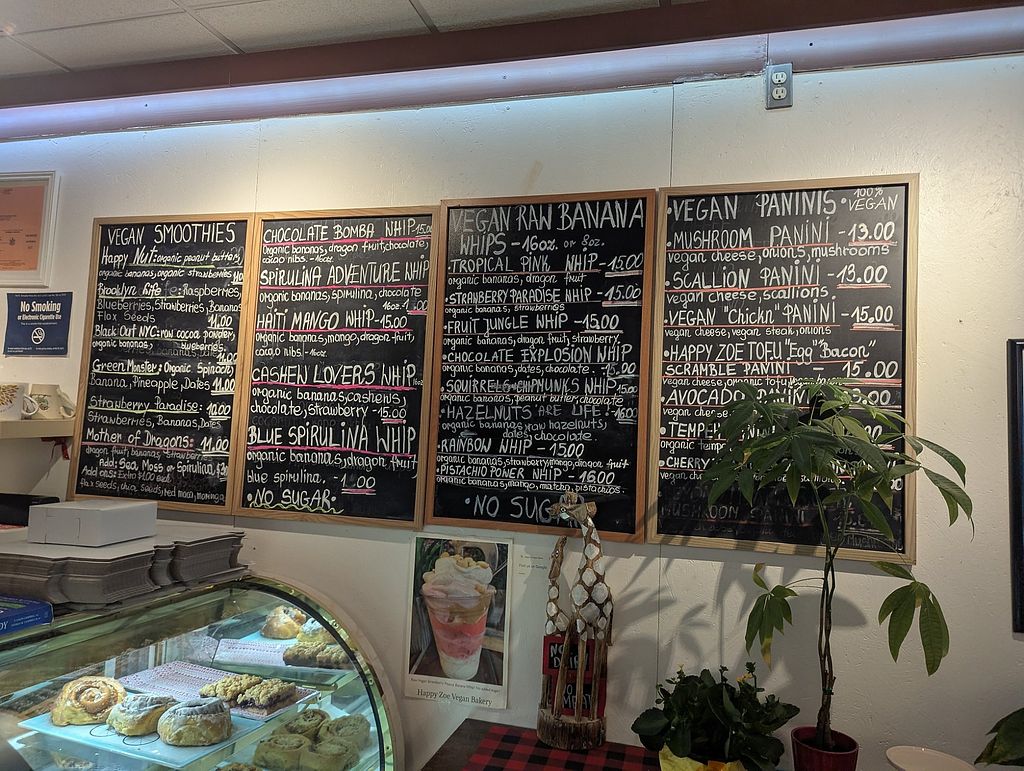 No Smoking
or Electronic Cigarette Use
VEGAN SMOOTHIES
Happy Nut: organic peanut butter,
organic bananas, organic strawberries
Brooklyn Life: Raspberries,
Blueberries, Strawberries, Banana,
Flax Seeds 11.00
Black Out NYC: raw cocoa powder,
organic bananas, blueberries,
11.00
Green Monster: Organic Spinach,
Banana, Pineapple, Dates 11.00
Strawberry Paradise: 10.00
Strawberries, Bananas, Dates
Mother of Dragons: 11.00
dragon fruit, bananas, strawberries,
Add: Sea Moss or Spirulina,
Add ons: Extra
flax seeds, chia seeds,
CHOCOLATE BOMBA WHIP 15.00
Organic bananas, dragon fruit, chocolate,
cacao nibs. -16oz.
SPIRULINA ADVENTURE WHIP
organic bananas, spirulina, chocolate
HAITI MANGO WHIP -15.00
organic bananas, mango, dragon fruit,
cacao nibs -16oz
CASHEW LOVERS WHIP 16oz
organic bananas, cashews,
chocolate, strawberry -15.00
BLUE SPIRULINA WHIP
organic bananas, dragon fruit
blue spirulina,
•NO SUGAR•
VEGAN RAW BANANA
WHIPS -16oz. or 8oz.
•TROPICAL PINK WHIP -15.00
organic bananas, dragon fruit
•STRAWBERRY PARADISE WHIP -15.00
organic bananas, strawberries
•FRUIT JUNGLE WHIP -15.00
organic bananas, dragon fruit, strawberry.
•CHOCOLATE EXPLOSION WHIP
organic bananas, dates, chocolate. -15.00
•SQUIRRELS CHIPMUNKS WHIP 15.00
organic bananas, peanut butter, chocolate
•HAZELNUTS ARE LIFE: -16.00
organic bananas, raw hazelnuts,
dates, chocolate
•RAINBOW WHIP -15.00
organic bananas, strawberry, mango, dragon fruit
•PISTACHIO POWER WHIP -16.00
organic bananas, mango, matcha, pistachios
•NO SUGA
•VEGAN PANINIS• 100% VEGAN
•MUSHROOM PANINI -13.00
vegan cheese, onions, mushrooms
•SCALLION PANINI -13.00
vegan cheese, scallions
•VEGAN "Chickn" PANINI -15.00
vegan cheese, vegan steak, onions
•HAPPY ZOE TOFU "Egg" "Bacon"
SCRAMBLE PANINI - 15.00
vegan cheese, organic tofu,
•AVOCADO PANINI
vegan
•TEMPEH
organic
•CHERRY
vegan
MUSHROOM
Happy Zoe Vegan Bakery